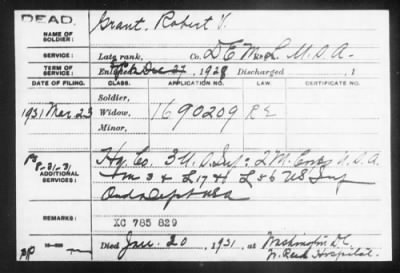 DEAD.
NAME OF SOLDIER: Grant, Robert V.
SERVICE: Late rank, Co. D E M & L U.S.A.
TERM OF SERVICE: Enlisted Dec 1928 Discharged , 1
DATE OF FILING. CLASS. APPLICATION NO. LAW. CERTIFICATE NO.
Soldier,
1931 Mar. 23 Widow, 1690209 RE
Minor,
8-31-31 Hq Co. 3 U.S. Inf. 2 M. Corps U.S.A.
ADDITIONAL SERVICES: 3 & L 17 & L 56 US Inf
Ord Dept USA
REMARKS: XC 785 829
Died Jan. 20, 1931, at Washington D.C.
W. Reed Hospital.